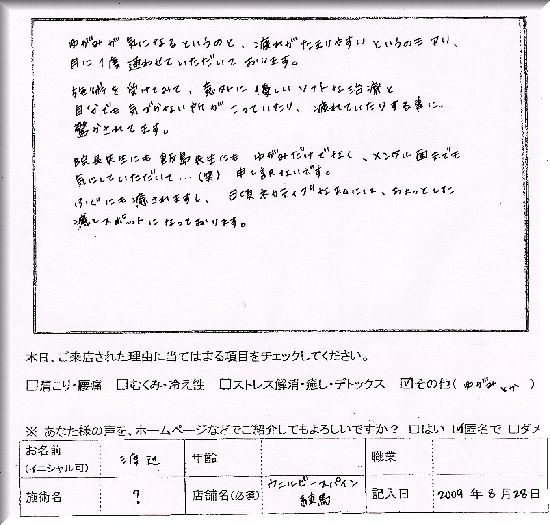 ゆがみが気になるというのと、疲れがたまりやすいというのもあり、
月に1度通わせていただいております。
施術を受けてみて、意外に優しいソフトな治療と
自分でも気づかない所がこっていたり、疲れていたりする事に
驚かされてます。
院長先生にも飯島先生にもゆがみだけでなく、メンタル面までも
気にしていただいて…(笑) 申し訳ないです。
にも癒されますし、日頃ネガティブな私には、ちょっとした
癒しスポットになっております。
本日、ご来店された理由に当てはまる項目をチェックしてください。
□肩こり・腰痛 □むくみ・冷え性 □ストレス解消・癒し・デトックス ☑その他( ゆがみ )
※ あなた様の声を、ホームページなどでご紹介してもよろしいですか? □はい ☑匿名で □ダメ
お名前 (イニシャル可) 渡辺 年齢 職業
施術名 ? 店舗名(必須) ウィルビースパイン 練馬 記入日 2009年8月28日